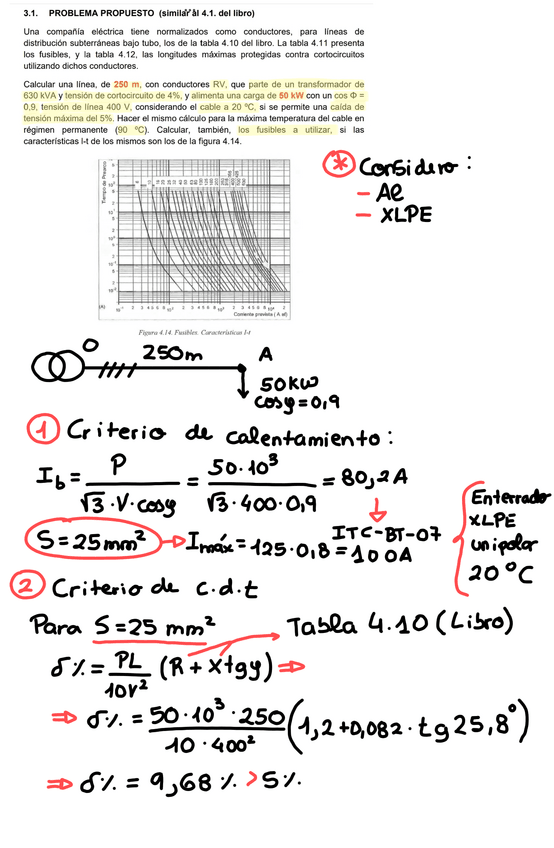 3.1. PROBLEMA PROPUESTO (similar al 4.1. del libro)
Una compañía eléctrica tiene normalizados como conductores, para líneas de
distribución subterráneas bajo tubo, los de la tabla 4.10 del libro. La tabla 4.11 presenta
los fusibles, y la tabla 4.12, las longitudes máximas protegidas contra cortocircuitos
utilizando dichos conductores.
Calcular una línea, de 250 m, con conductores RV, que parte de un transformador de
630 kVA y tensión de cortocircuito de 4%, y alimenta una carga de 50 kW con un cos Φ =
0,9, tensión de línea 400 V, considerando el cable a 20 ºC, si se permite una caída de
tensión máxima del 5%. Hacer el mismo cálculo para la máxima temperatura del cable en
régimen permanente (90 ºC). Calcular, también, los fusibles a utilizar, si las
características I-t de los mismos son los de la figura 4.14.
* Considero :
- Al
- XLPE
Tiempo de Prearco
(A)
Corriente prevista ( A ef)
Figura 4.14. Fusibles. Características I-t
0 250m A
50 KW
cosφ=0,9
1 Criterio de calentamiento :
Ib = P / √3 · V · cosφ = 50·10³ / √3 · 400 · 0,9 = 80,2 A
S = 25 mm² → Imáx = 125 · 0,8 = 100A
ITC-BT-07
Enterrado
XLPE
unipolar
20 °C
2 Criterio de c.d.t
Para S = 25 mm² Tabla 4.10 (Libro)
δ% = PL / 10V² (R + X tgφ) ⇒
⇒ δ% = 50·10³ · 250 / 10 · 400² (1,2 + 0,082 · tg 25,8°)
⇒ δ% = 9,68 % > 5%